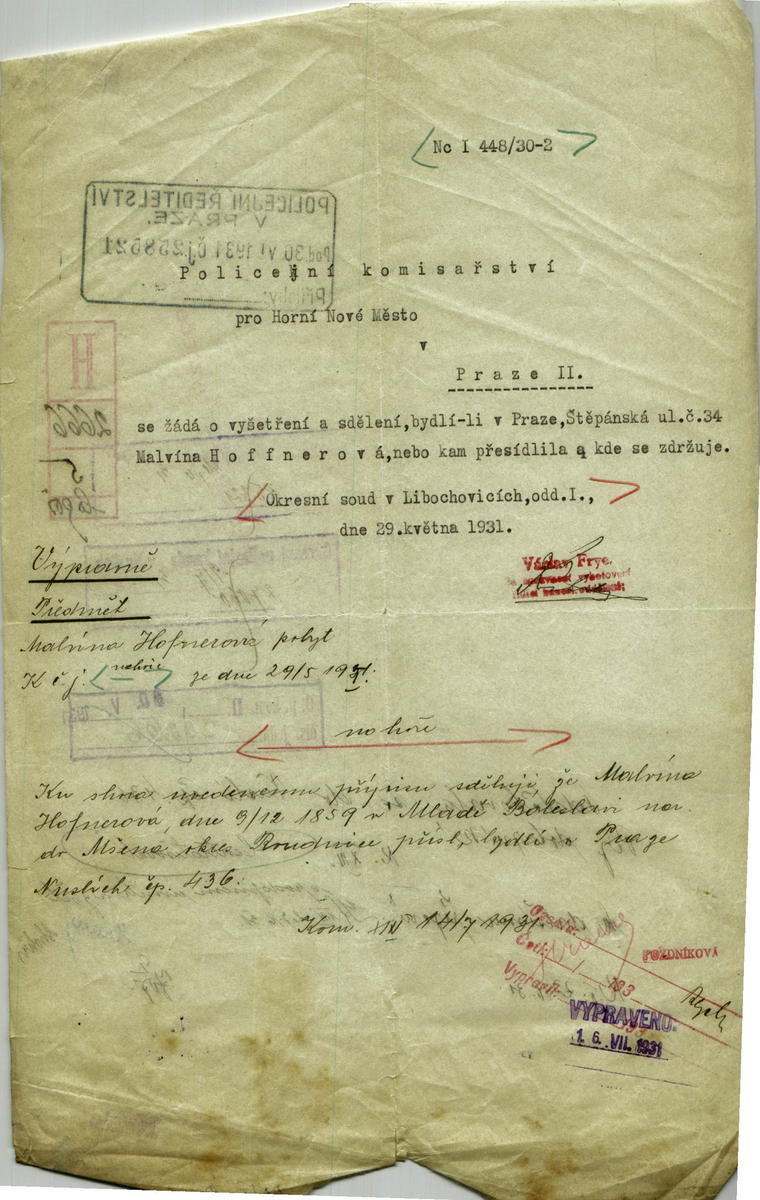 Nc I 448/30-2
POLICEJNÍ ŘEDITELSTVÍ
V PRAZE.
Pod 30 VI 1931 čj 258521
Přílohy:
Policejní komisařství
pro Horní Nové Město
v
Praze II.
H
2666
se žádá o vyšetření a sdělení,bydlí-li v Praze,Štěpánská ul.č.34
Malvína Hoffnerová,nebo kam přesídlila a kde se zdržuje.
Okresní soud v Libochovicích,odd.I.,
dne 29.května 1931.
Václav Frye.
Výpravně
Předmět
Malvína Hofnerová pobyt
K č.j. nahoře ze dne 29/5 1931.
nahoře
Ku shora uvedenému přípisu sděluji, že Malvína
Hofnerová, dne 3/12 1859 v Mladé Boleslavi nar.
do Mšena okres Roudnice přísl, bydlí v Praze
Nuslích čp. 436.
Kom. XIV 14/7 1931.
Četl:
193
Vypravil:
POŽDNÍKOVÁ
VYPRAVENO.
1 6. VII. 1931